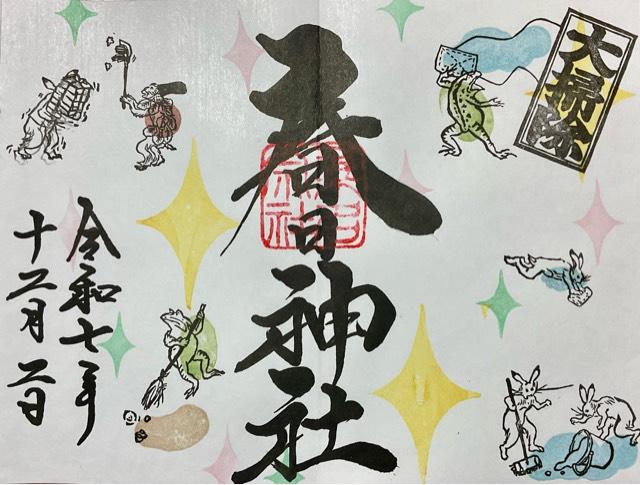 大掃除
春日神社
春日神社
令和七年
十二月二日